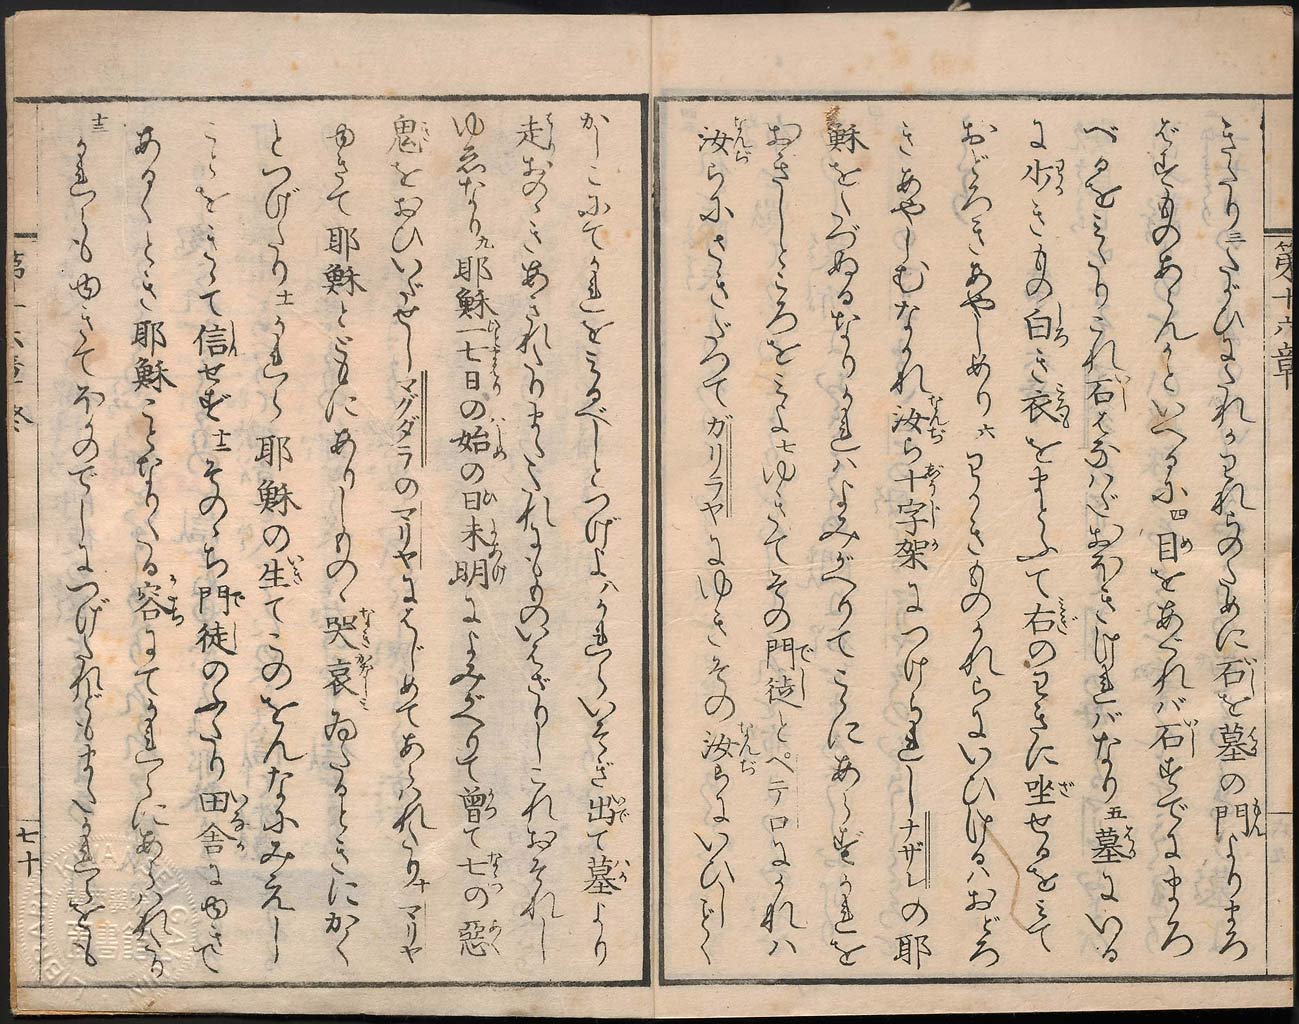 第十六章
きたり三たがひにたれかわれらのために石を墓の門よりまろ
ばすものあらんかといへるに四目をあぐれバ石すでにまろ
べるをみたりこれ石はなハだおほきけれバなり五墓にいる
に少きものの白き衣をまとふて右のわきに坐せるをみて
おどろきあやしめり六わかきものかれらにいひけるハおどろ
きあやしむなかれ汝ら十字架につけられしナザレの耶
穌をたづぬるなりかれハよみがへりてここにあらずかれを
おきしところをみよ七ゆきてその門徒とペテロにかれハ
汝らにさきだつてガリラヤにゆきその汝らにいひしごとく
かしこにてかれをみるべしとつげよ八かれらいそぎ出て墓より
走おののきあきれたりまたたれにもものいはざりしこれおそれし
ゆゑなり九耶穌一七日の始の日未明によみがへりて曾て七の惡
鬼をおひいだせしマグダラのマリヤにはじめてあらハれたり十マリヤ
ゆきて耶穌とともにありしものの哭哀ゐたるときにかく
とつげたり十一かれら耶穌の生てこのをんなにみえし
ことをききて信せず十二そののち門徒のふたり田舎にゆきて
あるくとき耶穌ことなりたる容にてかれらにあらハれたる
十三かれらもゆきてほかのでしにつげたれどもまたかれらをも
第十六章終
七十